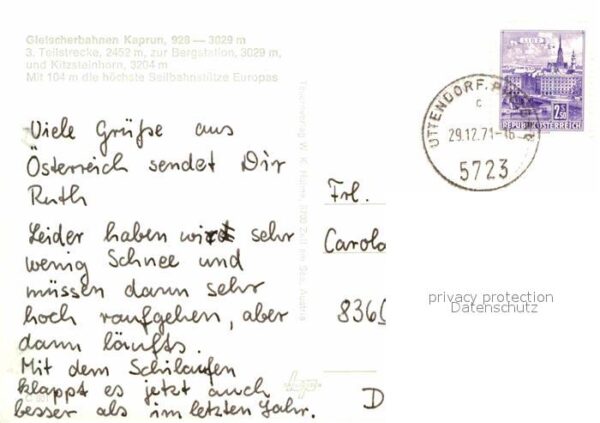 Gletscherbahnen Kaprun, 928 — 3029 m
3. Teilstrecke, 2452 m, zur Bergstation, 3029 m,
und Kitzsteinhorn, 3204 m
Mit 104 m die höchste Seilbahnstütze Europas
Viele Grüße aus
Österreich sendet Dir
Ruth
Leider haben wir sehr
wenig Schnee und
müssen dann sehr
hoch raufgehen, aber
dann läufts.
Mit dem Schilaufen
klappt es jetzt auch
besser als im letzten Jahr.
Zell am See, Austria
LINZ
2.50
REPUBLIK ÖSTERREICH
UTTENDORF
c
29.12.71-16
5723
Frl.
Carola
836
D
privacy protection
Datenschutz